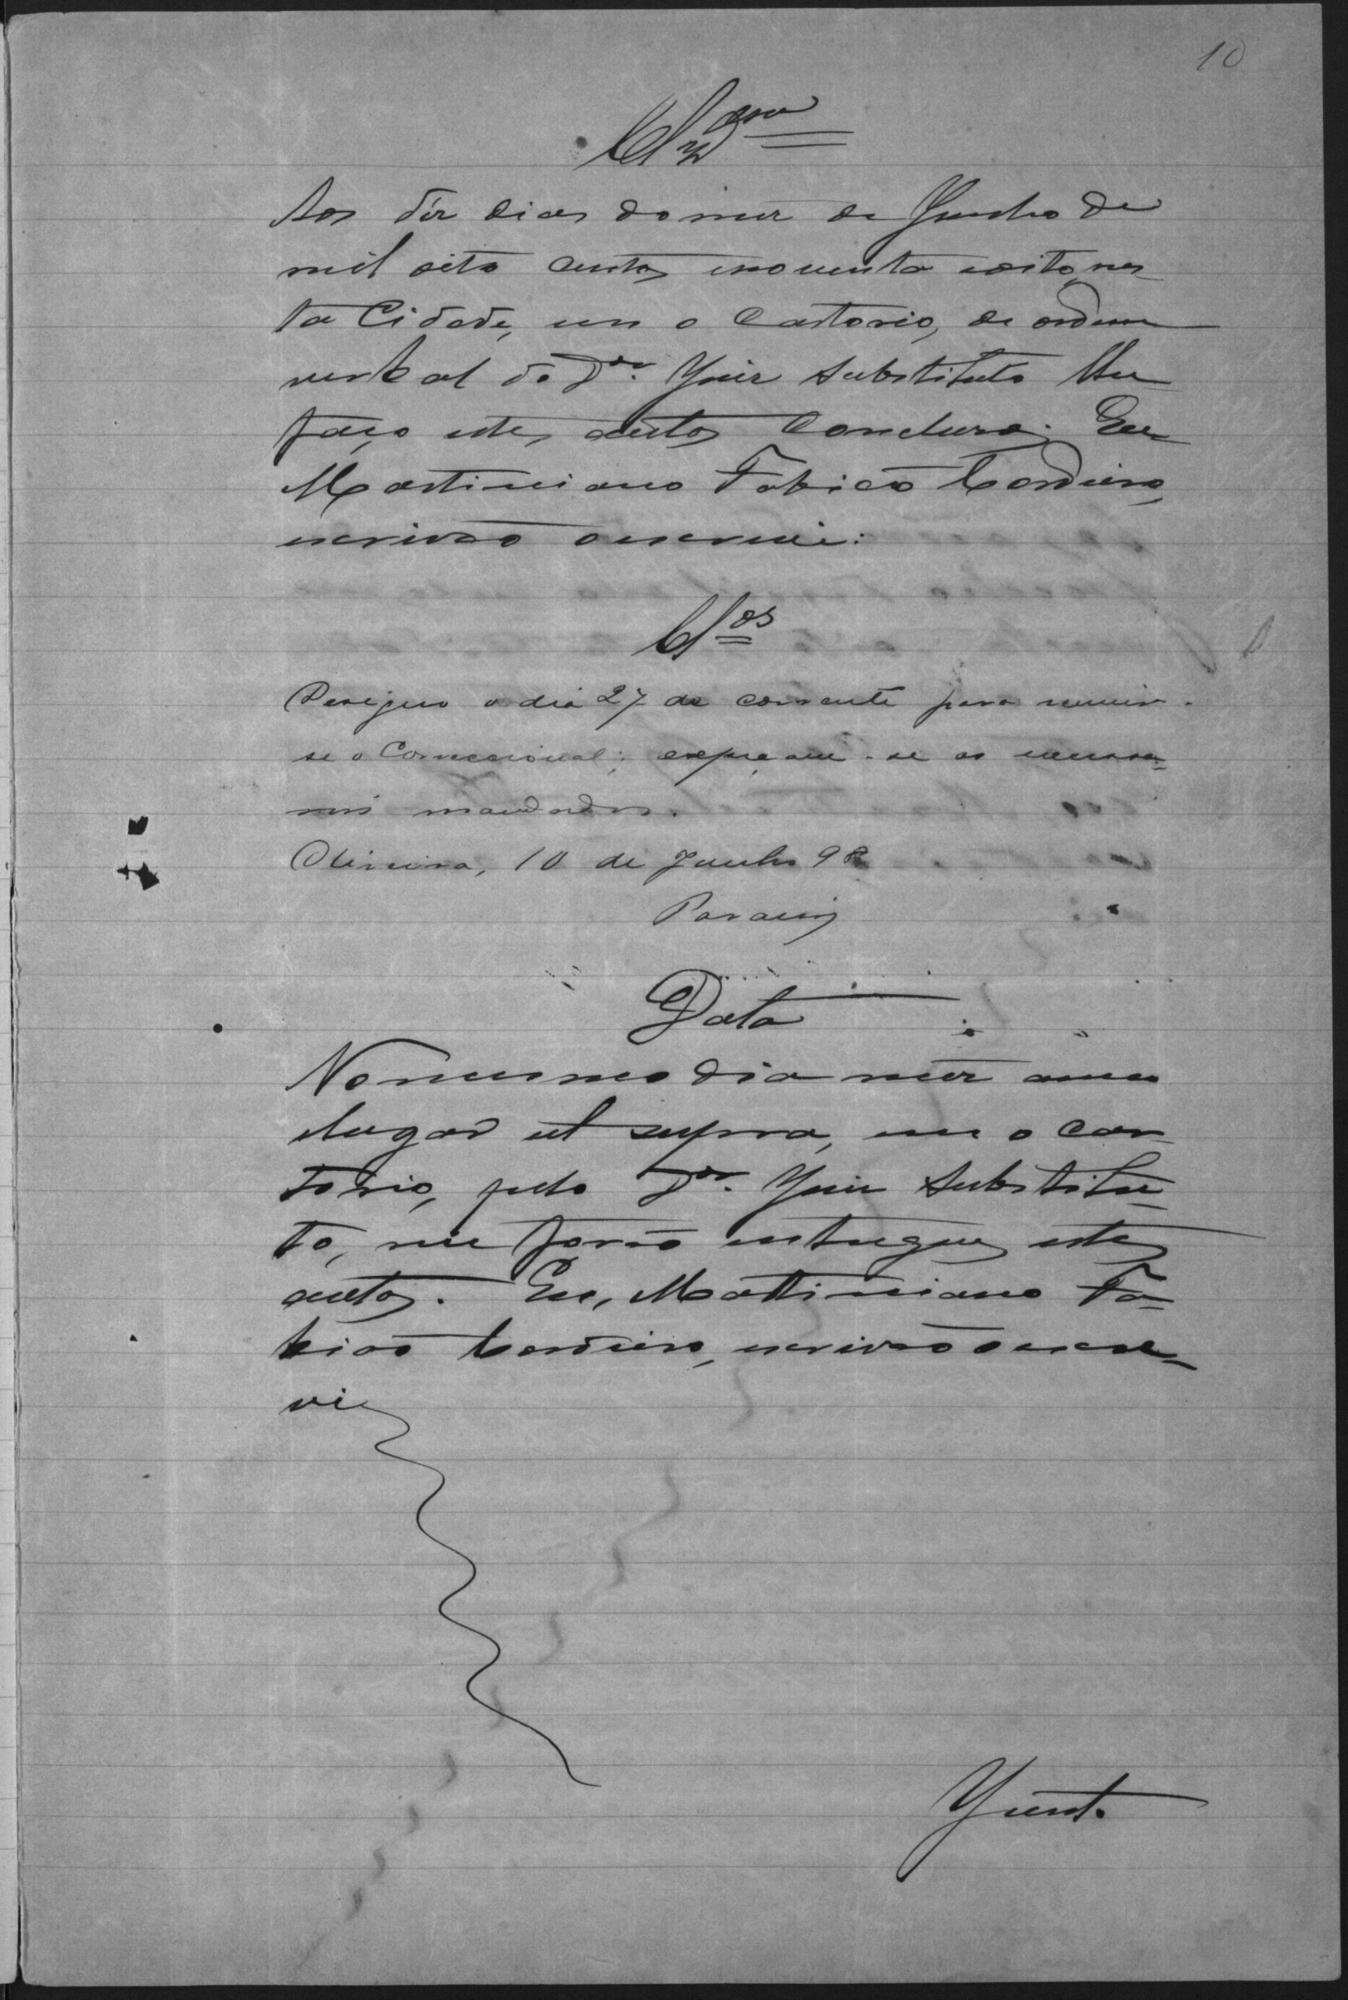 10
Clzam
Aos déz dias do mez de Junho de
mil oito centos enoventa eoito, nes-
ta Cidade, em o Cartorio, de ordem
verbal do Dor. Juiz Substituto lhe
faço estes autos Concluzos. Eu
Martiniano Fabião Cordeiro,
escrivão oescrevi:
Clos
Designo o dia 27 do corrente para reunir-
se o Correccional; expeçam-se os necessa-
rios mandados.
Oliveira, 10 de Junho 98
Data
Nomesmo dia mez anno
elugar ut supra, em o car-
torio, pelo Dor. Juiz Substitu-
to, me forão entregues estes
autos. Eu, Martiniano Fa-
bião Cordeiro, escrivão oescre-
vi
Junt.